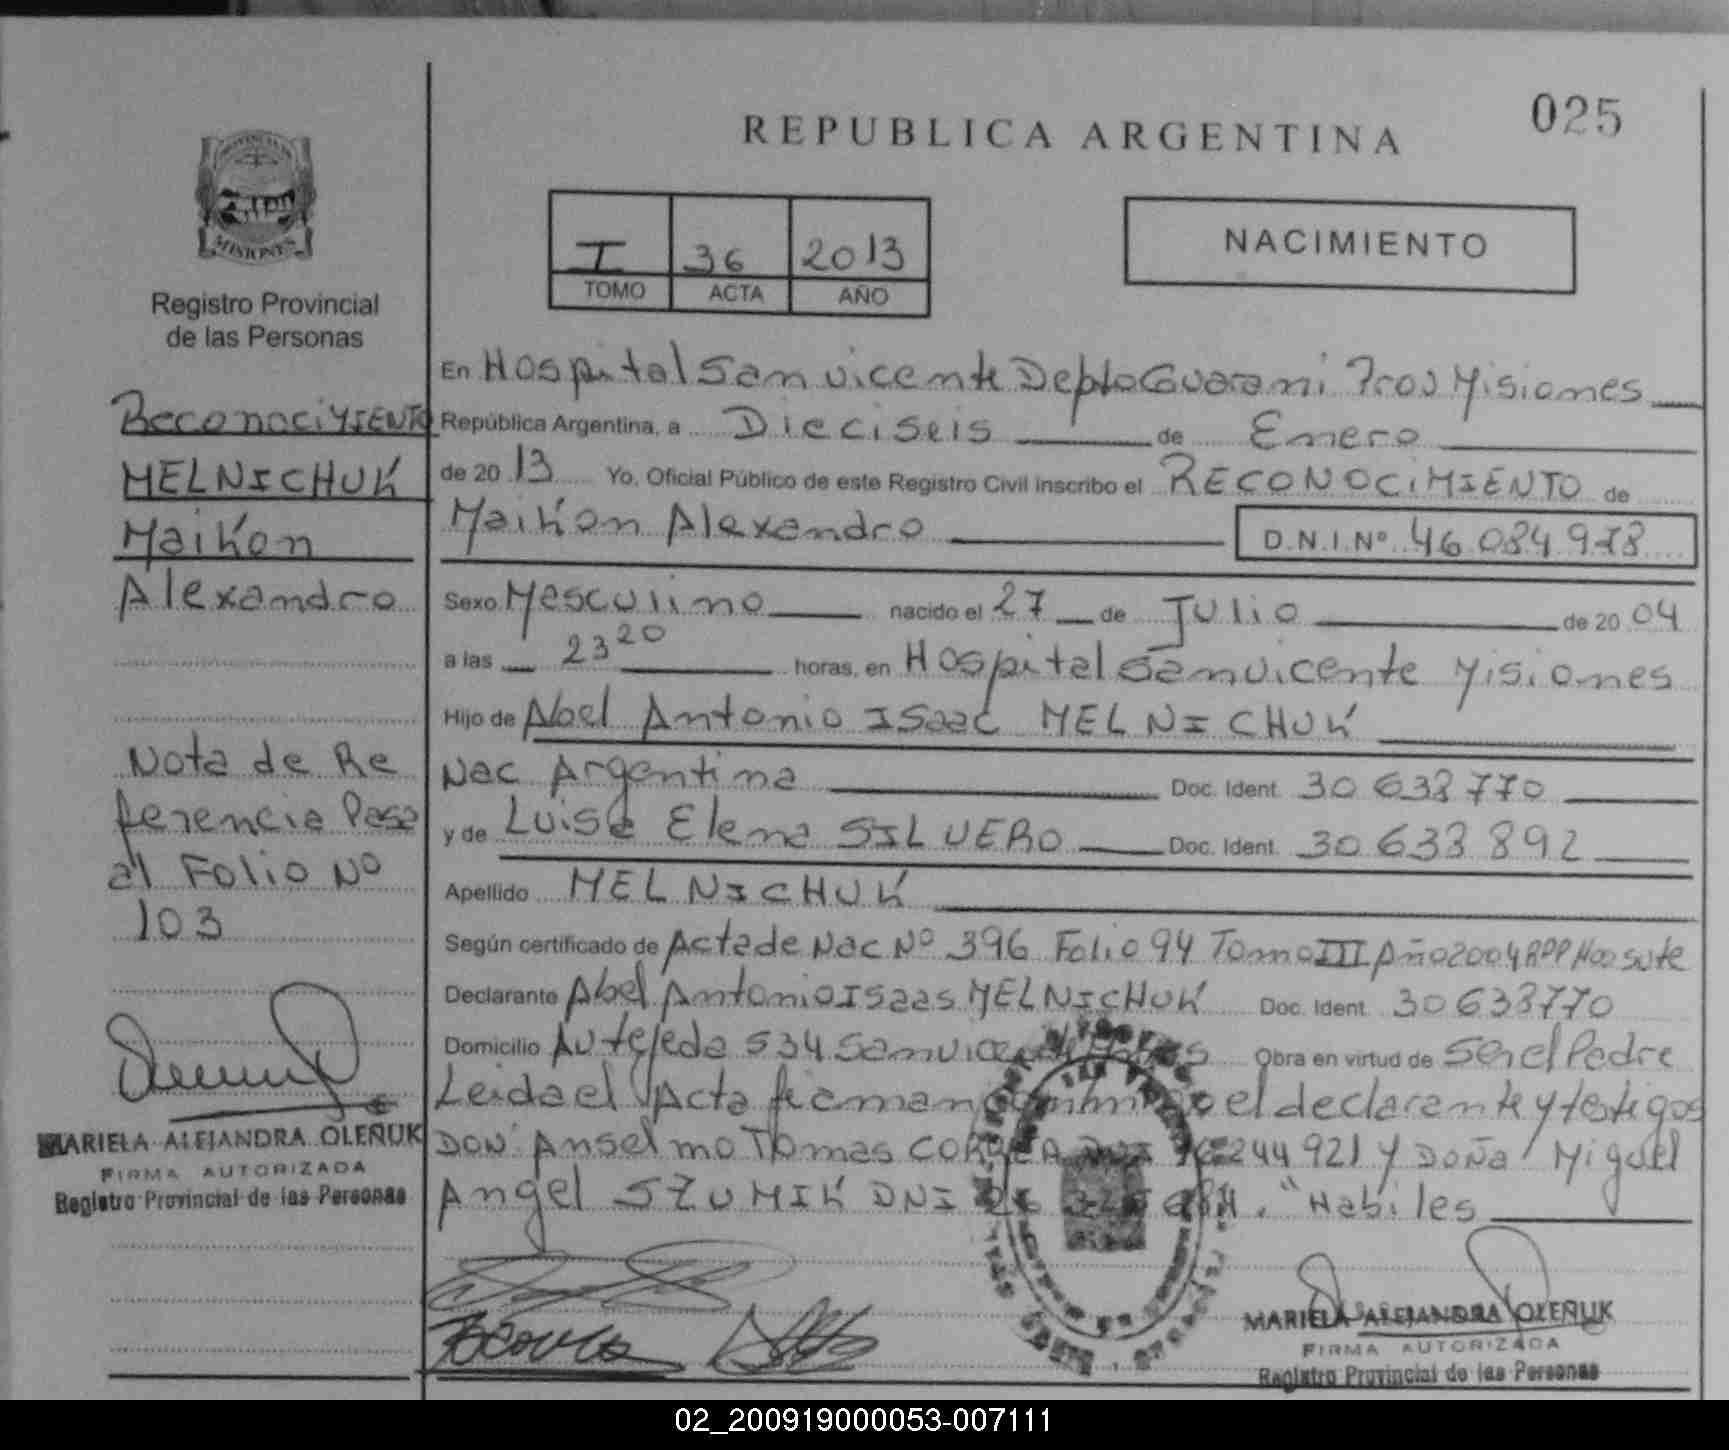 REPUBLICA ARGENTINA
025
MISIONES
Registro Provincial
de las Personas
I 36 2013
TOMO ACTA AÑO
NACIMIENTO
ReconociMIENTO
MELNICHUK
Maikon
Alexandro
Nota de Re
ferencia Pasa
al Folio Nº
103
MARIELA ALEJANDRA OLEÑUK
FIRMA AUTORIZADA
Registro Provincial de las Personas
En Hospital San vicente Depto Guarani Prov Misiones
República Argentina, a Dieciseis de Enero
de 20 13 Yo, Oficial Público de este Registro Civil inscribo el RECONOCIMIENTO de
Maikon Alexandro D.N.I.Nº 46 084 978
Sexo Masculino nacido el 27 de Julio de 20 04
a las 23 20 horas, en Hospital San vicente Misiones
Hijo de Abel Antonio ISaac MELNICHUK
Nac Argentina Doc. Ident. 30 638 770
y de Luisa Elena SILVERO Doc. Ident. 30 638 892
Apellido MELNICHUK
Según certificado de Acta de Nac Nº 396 Folio 94 Tomo III Año 2004 RPP
Declarante Abel Antonio ISaas MELNICHUK Doc. Ident. 30 638770
Domicilio Av tejeda 534 San vicente Obra en virtud de Ser el Padre
Leida el Acta firman conmigo el declarante y testigos
DON Anselmo Tomas CORREA 244 921 y DOÑA Miguel
Angel SZUMIK DNI "Habiles
MARIELA ALEJANDRA OLEÑUK
FIRMA AUTORIZADA
Registro Provincial de las Personas
02_200919000053-007111